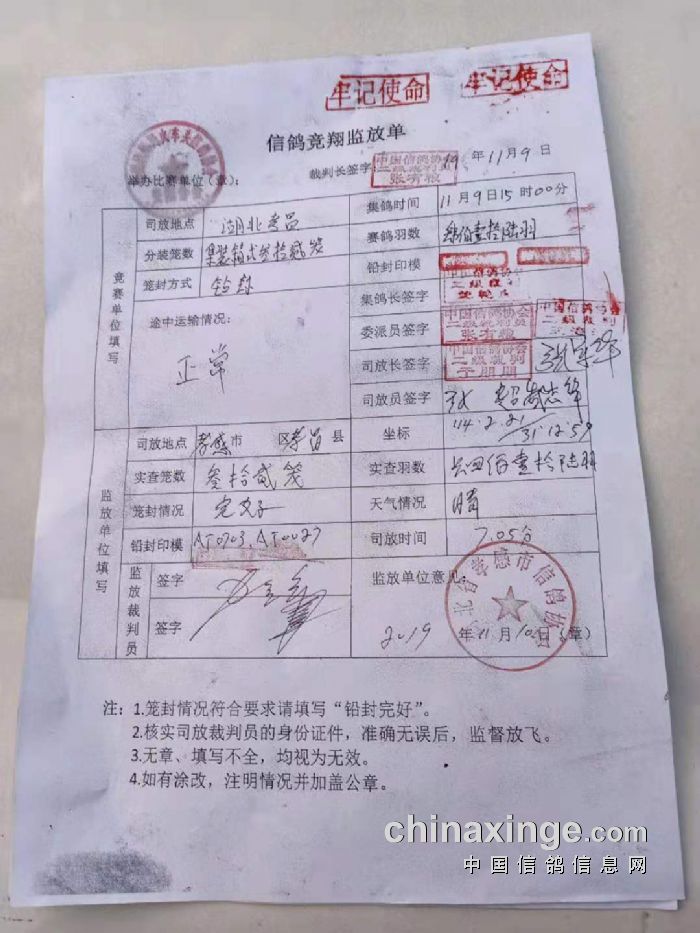 牢记使命 牢记使命
信鸽竞翔监放单
举办比赛单位（章）： 裁判长签字 中国信鸽协会 年11月9日
竞赛单位填写
司放地点 湖北孝昌 集鸽时间 11月9日15时00分
分装笼数 集装箱式叁拾贰笼 赛鸽羽数 佰壹拾陆羽
笼封方式 铅封 铅封印模
途中运输情况： 正常 集鸽长签字 中国信鸽协会
委派员签字 中国信鸽协会 二级裁判员
司放长签字 中国信鸽协会 二级裁判
司放员签字
监放单位填写
司放地点 孝感市 区孝昌县 坐标 114.2.21/31.12.59
实查笼数 叁拾贰笼 实查羽数 佰壹拾陆羽
笼封情况 完好 天气情况 晴
铅封印模 AT0703 AT0027 司放时间 7.05分
监放裁判员 签字 监放单位意见：
签字 2019年11月10日（章）
湖北省孝感市信鸽协会
注：1.笼封情况符合要求请填写“铅封完好”。
2.核实司放裁判员的身份证件，准确无误后，监督放飞。
3.无章、填写不全，均视为无效。
4.如有涂改，注明情况并加盖公章。
chinaxinge.com
中国信鸽信息网